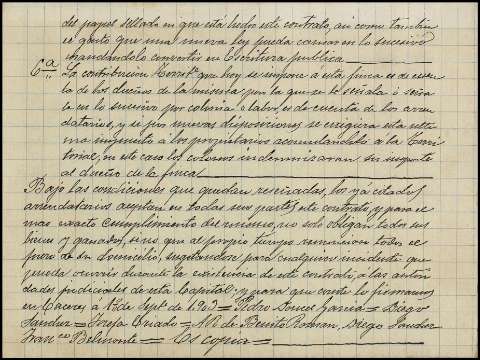 del papel sellado en que está hecho este contrato, así como tambien
el gasto que una nueva ley pueda causar en lo sucesivo
mandandolo convertir en Escritura publica
6ª La contribucion Territ.l que hoy se impone a esta finca es de cuen
ta de los dueños de la misma por la que se le señala ó seña
le en lo sucesivo por colonia ó labor, es de cuenta de los arren
datarios, y si por nuevas disposiciones se exigiera esta ulti
ma impuesto á los propietarios acumulandolo a la Terri
torial, en este caso los colonos indemnizaran su importe
al dueño de la finca
Bajo las condiciones que quedan reseñadas, los yá citados
arrendatarios aceptan en todas sus partes este contrato, y para el
mas exacto cumplimiento del mismo, no solo obligan todos sus
bienes y ganados, sino que al propio tiempo renuncian todos el
fuero de su domicilio, sugetandose para cualquier incidente que
pueda ocurrir durante la existencia de este contrato, a las autori
dades judiciales de esta Capital; y para que conste lo firmamos
en Caceres á 1º de Sept.e de 1903 = Pedro Gomez Garcia = Diego
Sanchez = Josefa Criado = M. de Benito Roman, Diego Sanchez
Fran.co Belmonte = Es copia =